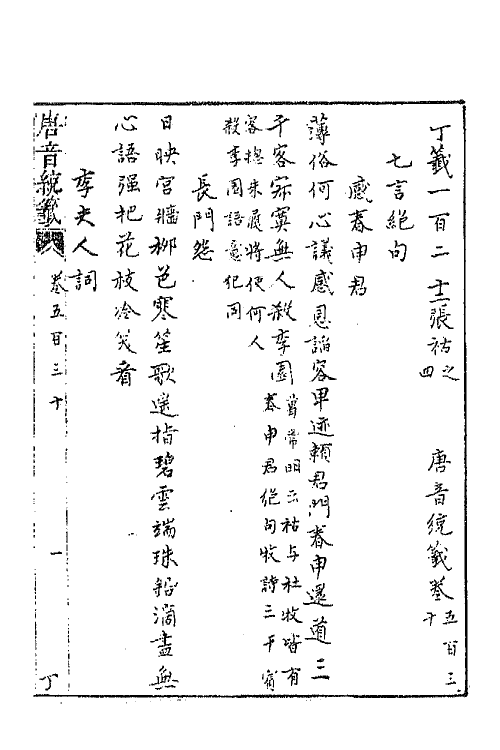 丁籤一百二 十二張祜之四 唐音統籤卷五百三十
七言絕句
感春申君
薄俗何心議感恩諂容卑迹賴君門春申還道三
千客寂寞無人殺李園 曾常明云祜与杜牧皆有春申君绝句牧詩三千賓
客總朱履將使何人殺李園語意犯同
長門怨
日映宫牆柳色寒笙歌遥指碧雲端珠鉛滴盡無
心語强把花枝冷笑看
李夫人詞
唐音統籤 卷五百三十 一 丁